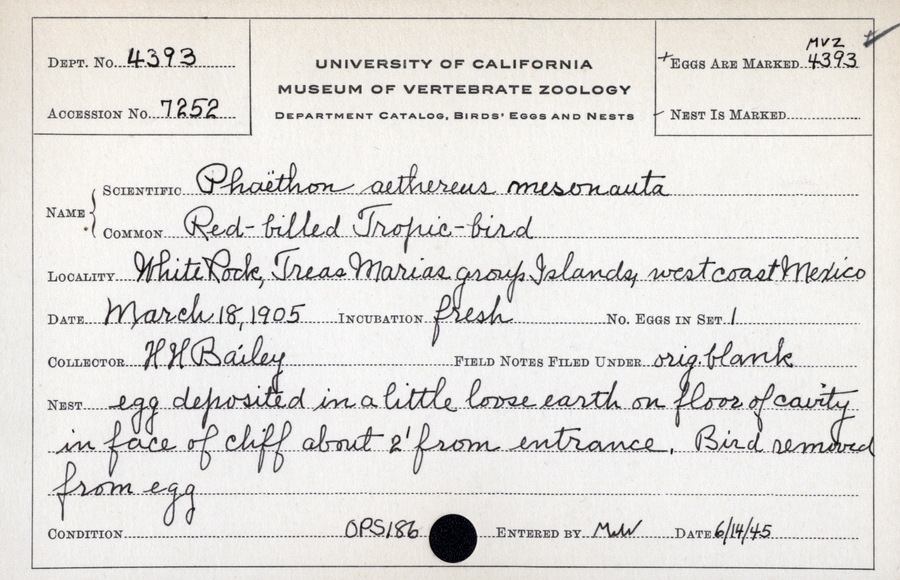 DEPT. NO. 4393
ACCESSION NO. 7252
UNIVERSITY OF CALIFORNIA
MUSEUM OF VERTEBRATE ZOOLOGY
DEPARTMENT CATALOG, BIRDS' EGGS AND NESTS
MVZ
EGGS ARE MARKED 4393
NEST IS MARKED
NAME
SCIENTIFIC Phaëthon aethereus mesonauta
COMMON Red-billed Tropic-bird
LOCALITY White Rock, Treas Marias group Islands, west coast Mexico
DATE March 18, 1905 INCUBATION fresh NO. EGGS IN SET 1
COLLECTOR H H Bailey FIELD NOTES FILED UNDER orig. blank
NEST egg deposited in a little loose earth on floor of cavity
in face of cliff about 2' from entrance. Bird removed
from egg
CONDITION OPS186 ENTERED BY MWW DATE 6/14/45